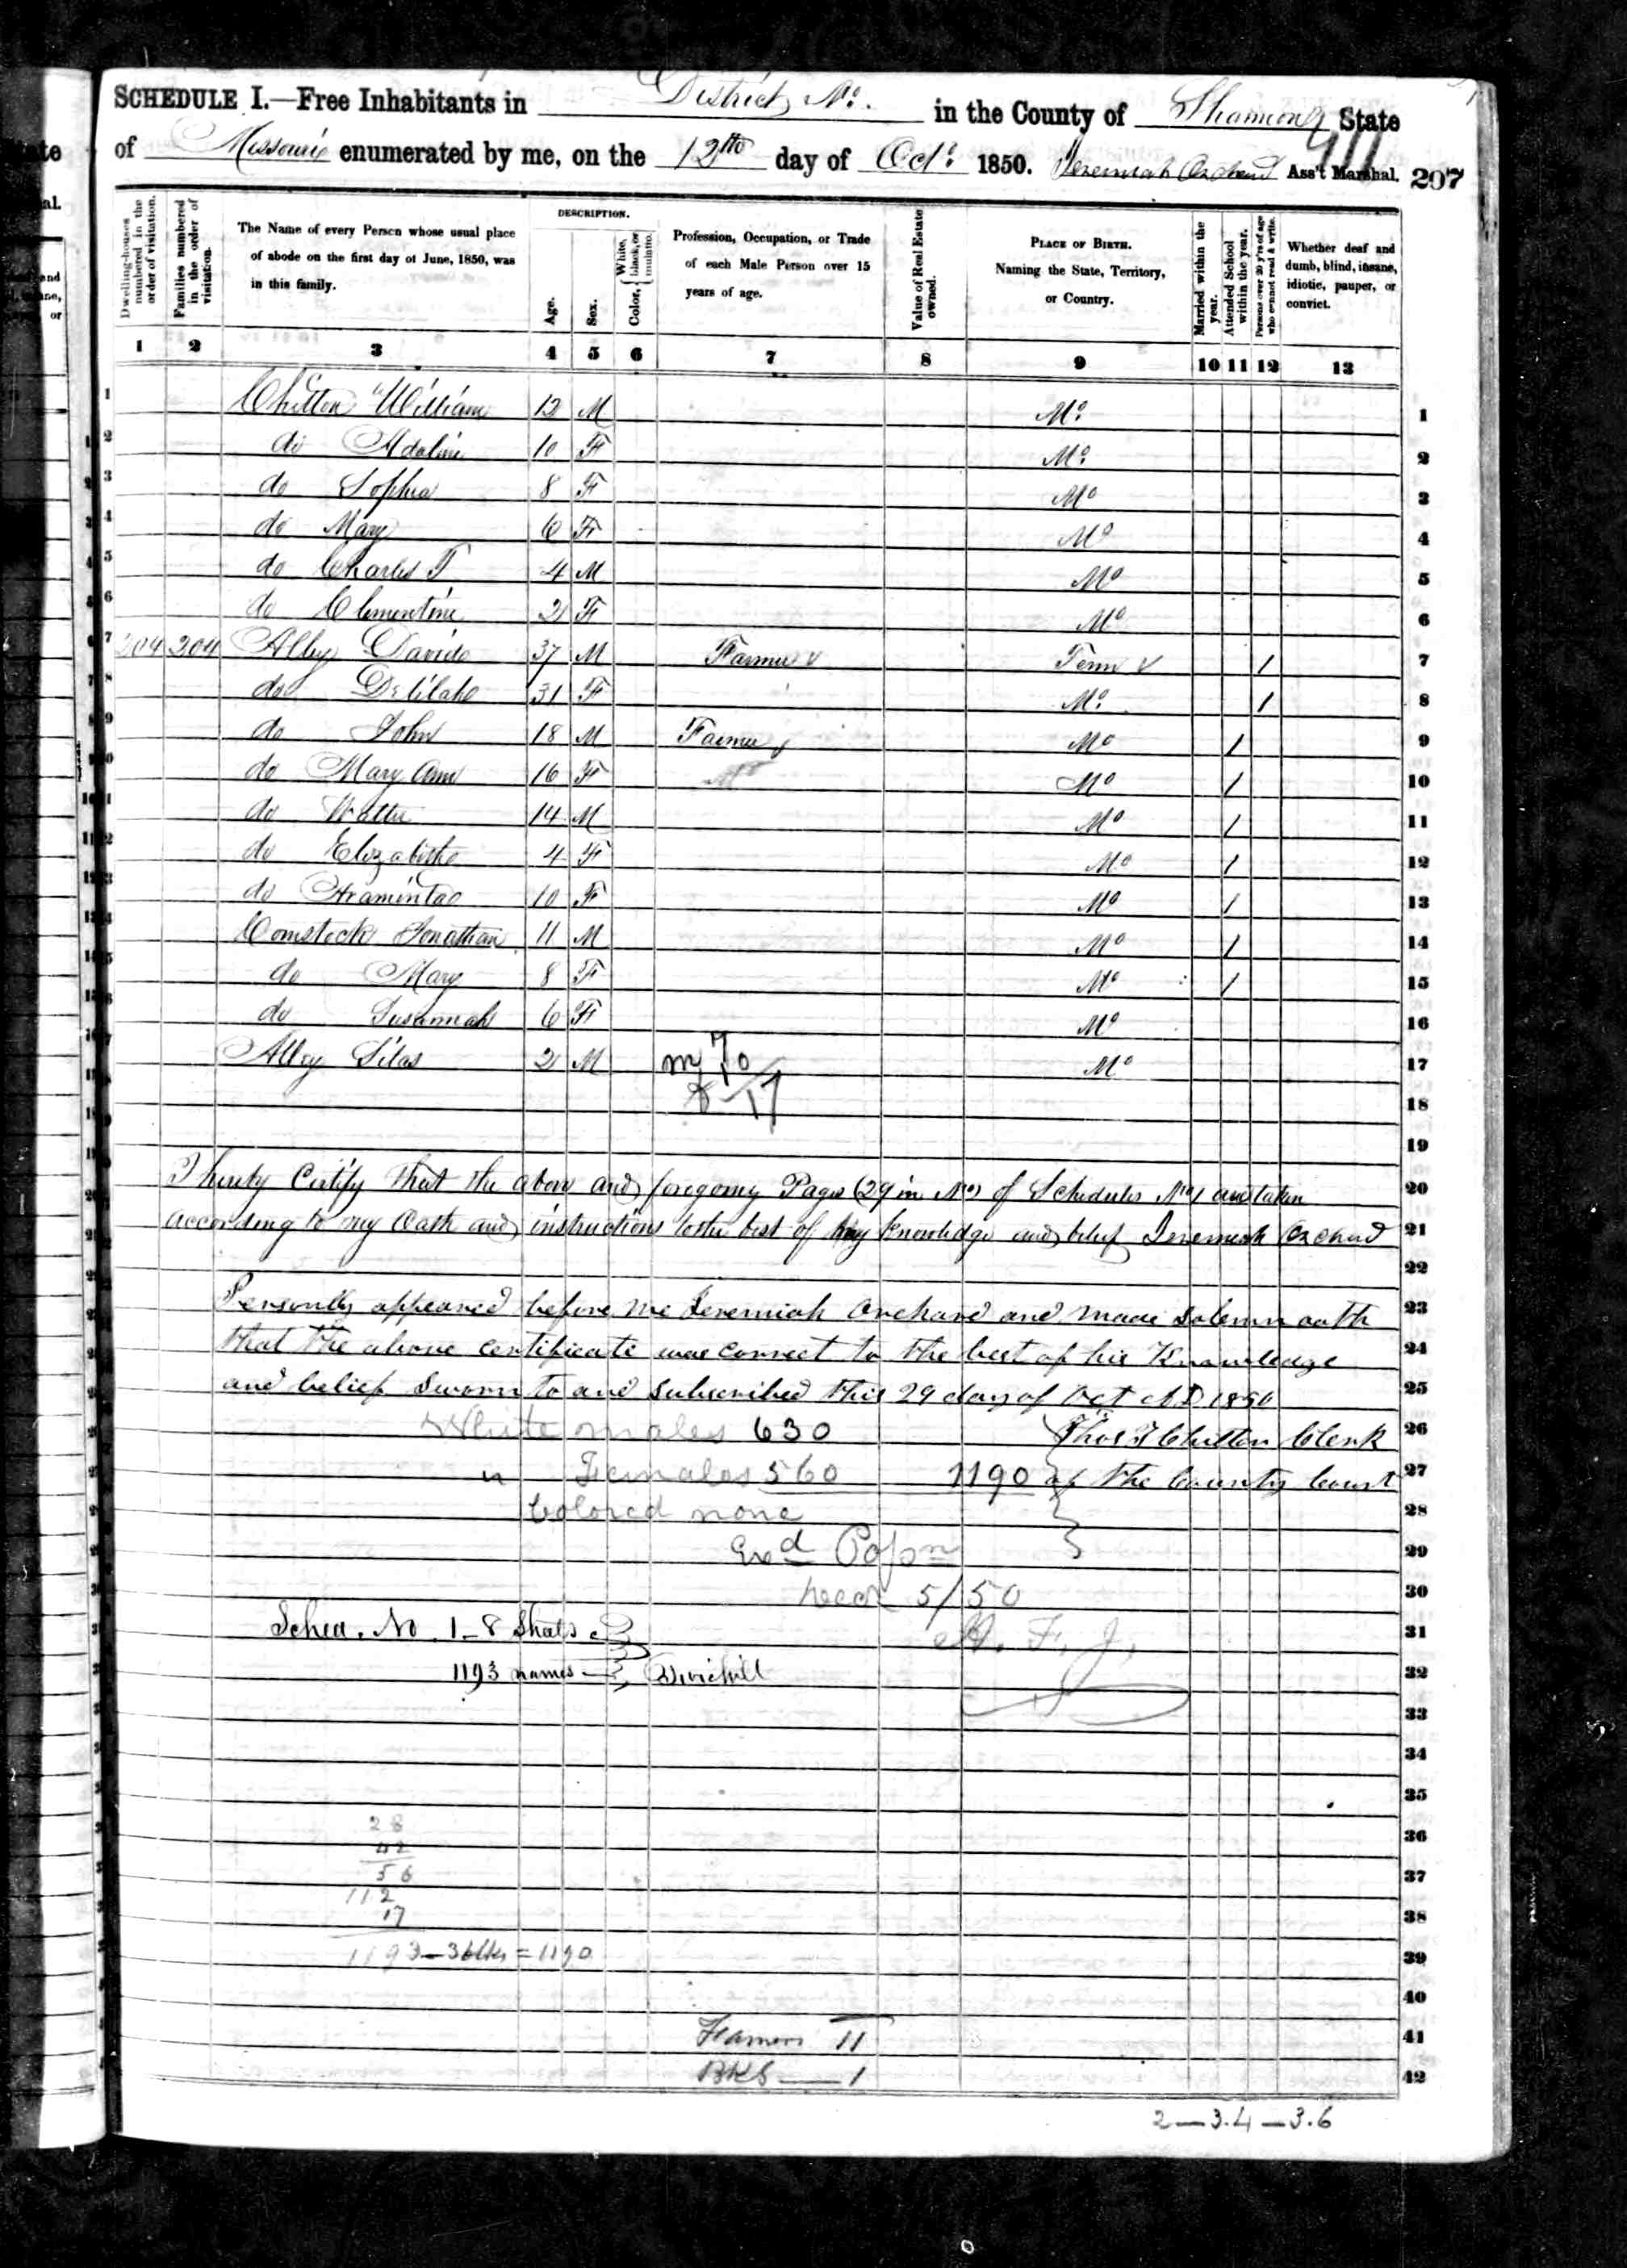 SCHEDULE I.—Free Inhabitants in District No. in the County of Shannon State
of Missouri enumerated by me, on the 12th day of Oct. 1850. Jeremiah Orchard Ass't Marshal. 207
Dwelling-houses numbered in the order of visitation.
Families numbered in the order of visitation.
The Name of every Person whose usual place of abode on the first day of June, 1850, was in this family.
DESCRIPTION.
Age.
Sex.
Color, { White, black, or mulatto.
Profession, Occupation, or Trade of each Male Person over 15 years of age.
Value of Real Estate owned.
PLACE OF BIRTH. Naming the State, Territory, or Country.
Married within the year.
Attended School within the year.
Persons over 20 y'rs of age who cannot read & write.
Whether deaf and dumb, blind, insane, idiotic, pauper, or convict.
1 2 3 4 5 6 7 8 9 10 11 12 13
1 Chilton William 12 M Mo. 1
2 do Adaline 10 F Mo. 2
3 do Sophia 8 F Mo 3
4 do Mary 6 F Mo 4
5 do Charles T 4 M Mo 5
6 do Clementine 2 F Mo 6
7 204 204 Alley David 37 M Farmer v Tenn v 1 7
8 do Delilah 31 F Mo. 1 8
9 do John 18 M Farmer Mo 1 9
do Mary Ann 16 F Mo 1 10
do Walter 14 M Mo 1 11
do Elizabeth 4 F Mo 1 12
do Araminta 10 F Mo 1 13
Comstock Jonathan 11 M Mo 1 14
do Mary 8 F Mo 1 15
do Susannah 6 F Mo 16
Alley Silas 2 M Mo 17
18
19
I hereby Certify that the above and foregoing Pages (29 in No) of Schedules No 1 are taken 20
according to my Oath and instructions to the best of my knowledge and belief Jeremiah Orchard 21
22
Personally appeared before me Jeremiah Orchard and made solemn oath 23
that the above certificate was correct to the best of his Knowledge 24
and belief Sworn to and subscribed this 29 day of Oct A.D 1850 25
White males 630 Thos T Chilton Clerk 26
" Females 560 1190 of the County Court 27
Colored none 28
29
5/50 30
Sched. No. 1-8 31
1193 names 32
33
34
35
28 36
42
56 37
112
17 38
1193 - 3 blks = 1190 39
40
Farmers 11 41
BKS — 1 42
2 — 3.4 — 3.6